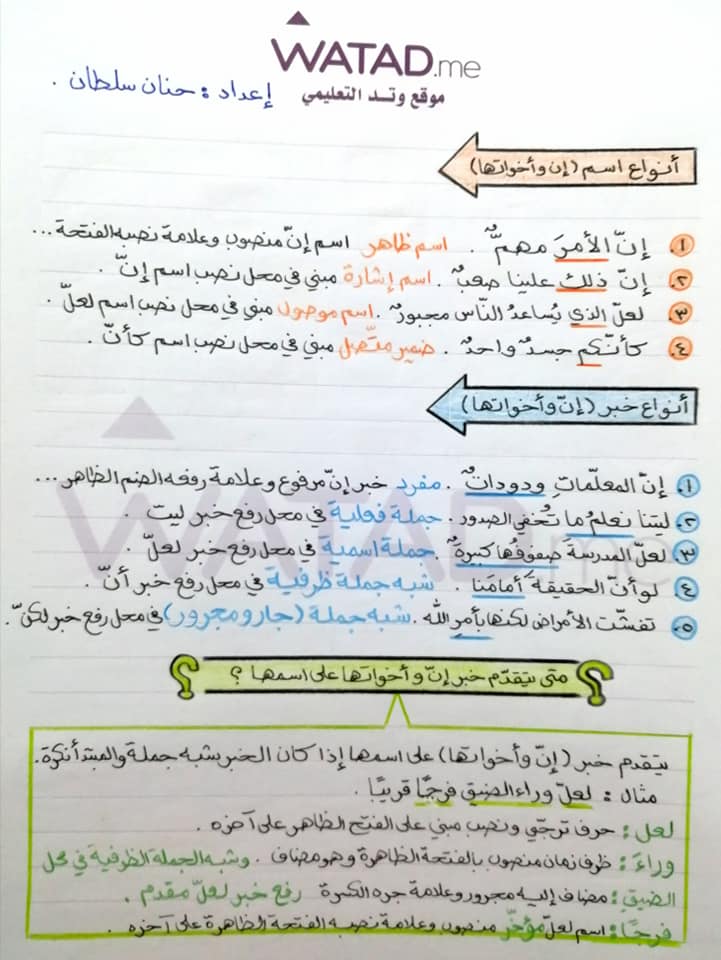 WATAD.me
موقع وتد التعليمي
إعداد : حنان سلطان .
أنواع اسم (إن وأخواتها)
١. إنّ الأمرَ مهمٌّ . اسم ظاهر اسم إنّ منصوب وعلامة نصبه الفتحة ...
٢. إنّ ذلك علينا صعبٌ . اسم إشارة مبني في محل نصب اسم إنّ .
٣. لعلّ الذي يُساعدُ النّاس مجبورٌ . اسم موصول مبني في محل نصب اسم لعلّ .
٤. كأنّكم جسدٌ واحدٌ . ضمير متّصل مبني في محل نصب اسم كأنّ .
أنواع خبر (إنّ وأخواتها)
١. إنّ المعلّماتِ ودوداتٌ . مفرد خبر إنّ مرفوع وعلامة رفعه الضم الظاهر ...
٢. ليتنا نعلمُ ما تُخفي الصدور . جملة فعلية في محل رفع خبر ليت .
٣. لعلّ المدرسةَ صفوفُها كبيرةٌ . جملة اسمية في محل رفع خبر لعلّ .
٤. لو أنّ الحقيقةَ أمامَنا . شبه جملة ظرفية في محل رفع خبر أنّ .
٥. تفشّت الأمراض لكنها بأمرِ الله . شبه جملة (جار ومجرور) في محل رفع خبر لكنّ .
متى يتقدّم خبر إنّ وأخواتها على اسمها ؟
يتقدم خبر (إنّ وأخواتها) على اسمها إذا كان الخبر شبه جملة والمبتدأ نكرة .
مثال : لعلّ وراءَ الضيقِ فرجًا قريبًا .
لعل : حرف ترجّي ونصب مبني على الفتح الظاهر على آخره .
وراءَ : ظرف زمان منصوب بالفتحة الظاهرة وهو مضاف . وشبه الجملة الظرفية في محل
الضيقِ : مضاف إليه مجرور وعلامة جره الكسرة رفع خبر لعلّ مقدم .
فرجًا : اسم لعلّ مؤخّر منصوب وعلامة نصبه الفتحة الظاهرة على آخره .